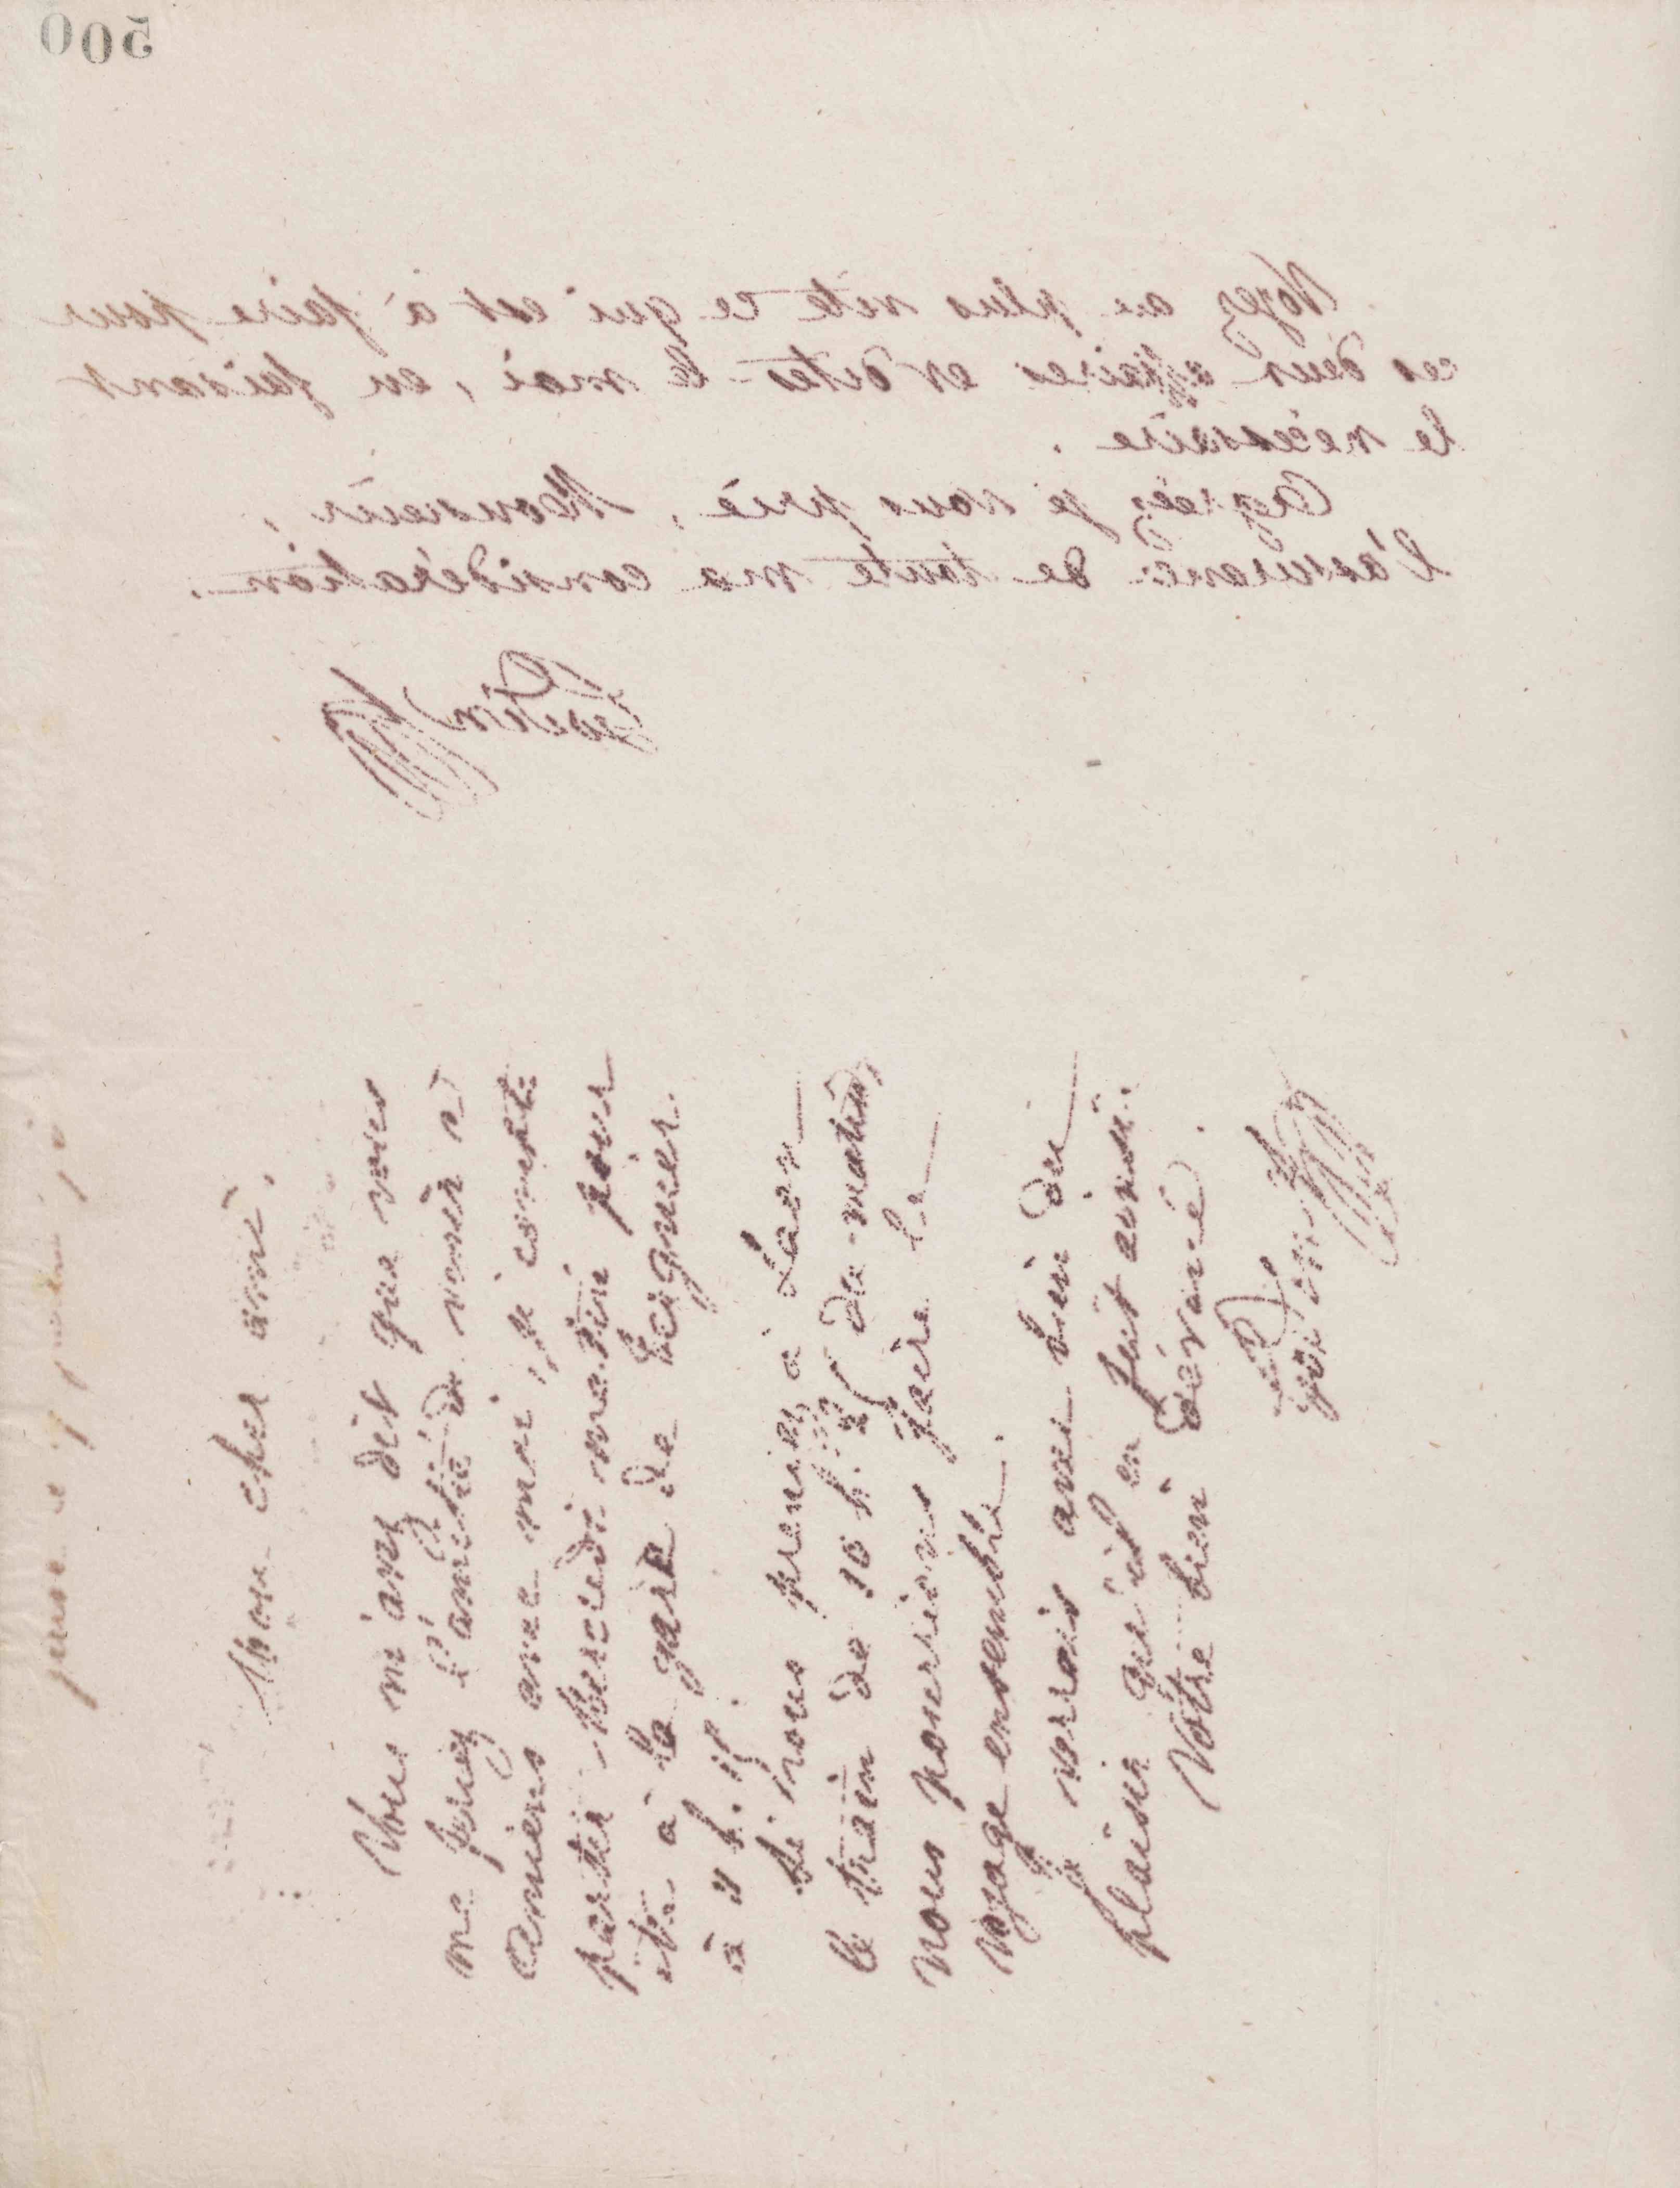 500
Voyez au plus vite ce qui est à faire pour
ces deux affaires et dites-le moi, en faisant
le nécessaire.
Agréez je vous prie, Monsieur,
l'assurance de toute ma considération.
Godin
Mon cher ami,
Vous m'avez dit que vous
me feriez l'amitié de venir à
Amiens avec moi, je compte
partir Mercredi matin pour
être à la gare de Tergnier
à 9 h. 15.
Si vous preniez à Laon
le train de 10 h. 25 du matin,
nous pourrions faire le
voyage ensemble.
Je verrais avec bien du
plaisir qu'il en fut ainsi.
Votre bien dévoué.
Godin